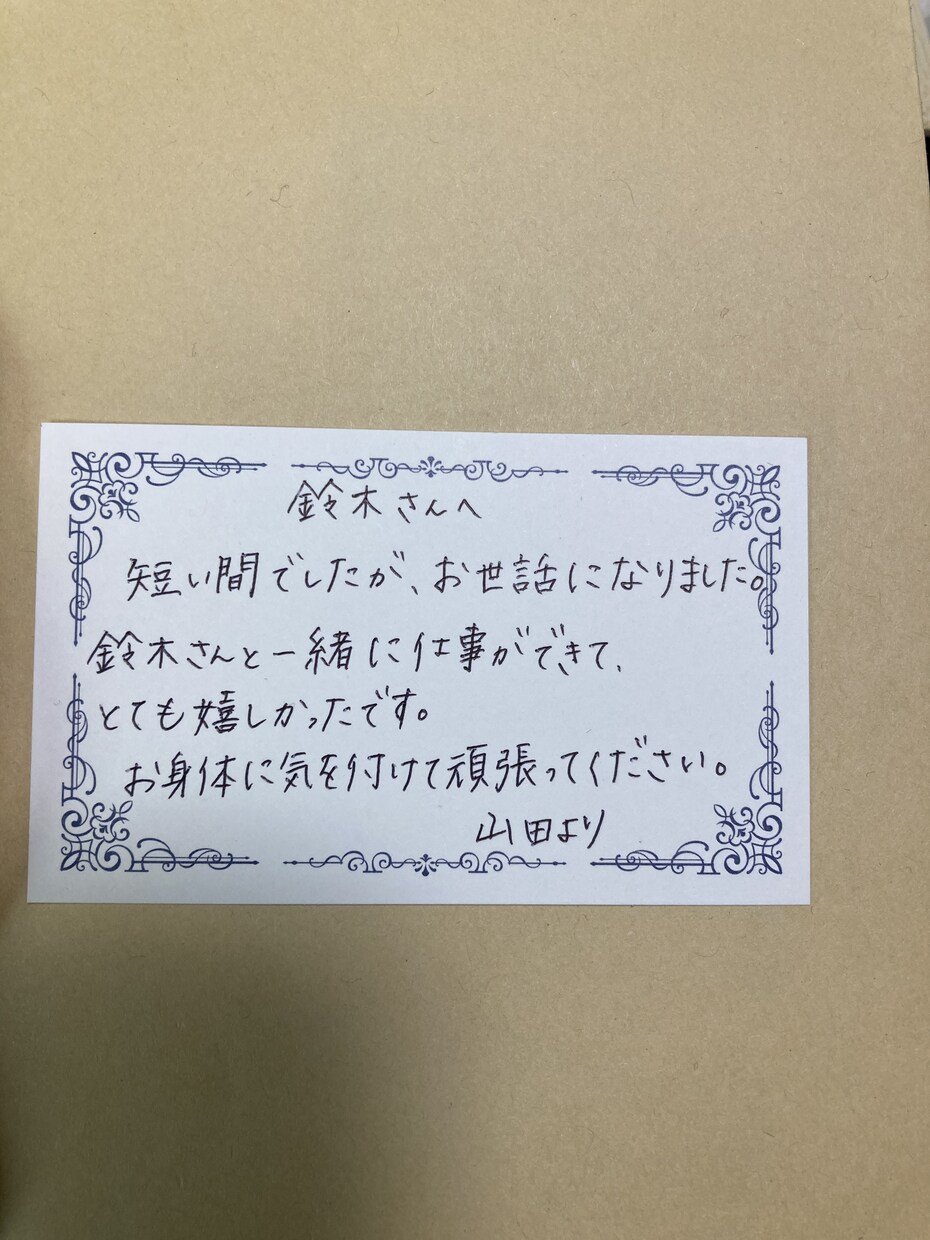 鈴木さんへ
短い間でしたが、お世話になりました。
鈴木さんと一緒に仕事ができて、
とても嬉しかったです。
お身体に気を付けて頑張ってください。
山田より